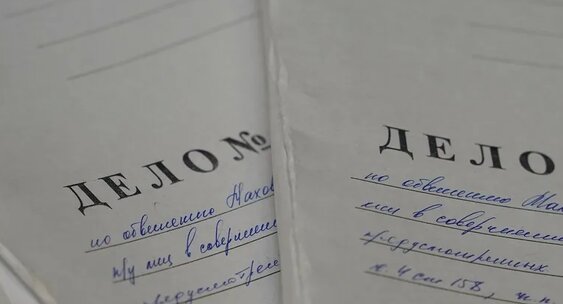 ДЕЛО №
по обвинению Махов
и др. лиц в совершени
предусмотрен
ДЕЛО
по обвинению Мах
лиц в совершении
предусмотренных
ч. 4 ст. 158, ч.